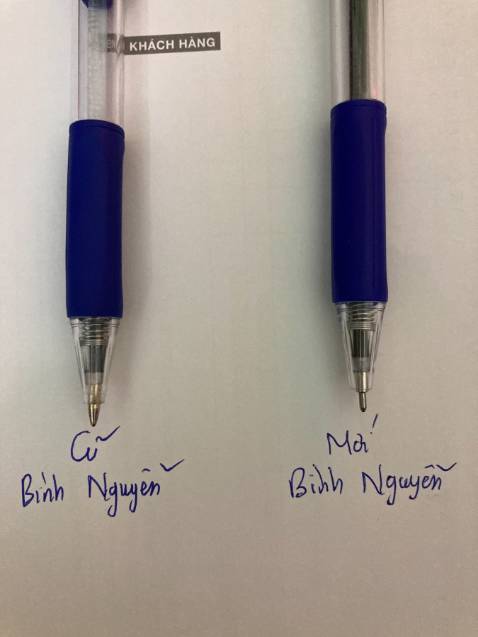 KHÁCH HÀNG
Cũ
Bình Nguyễn
Mới
Bình Nguyễn